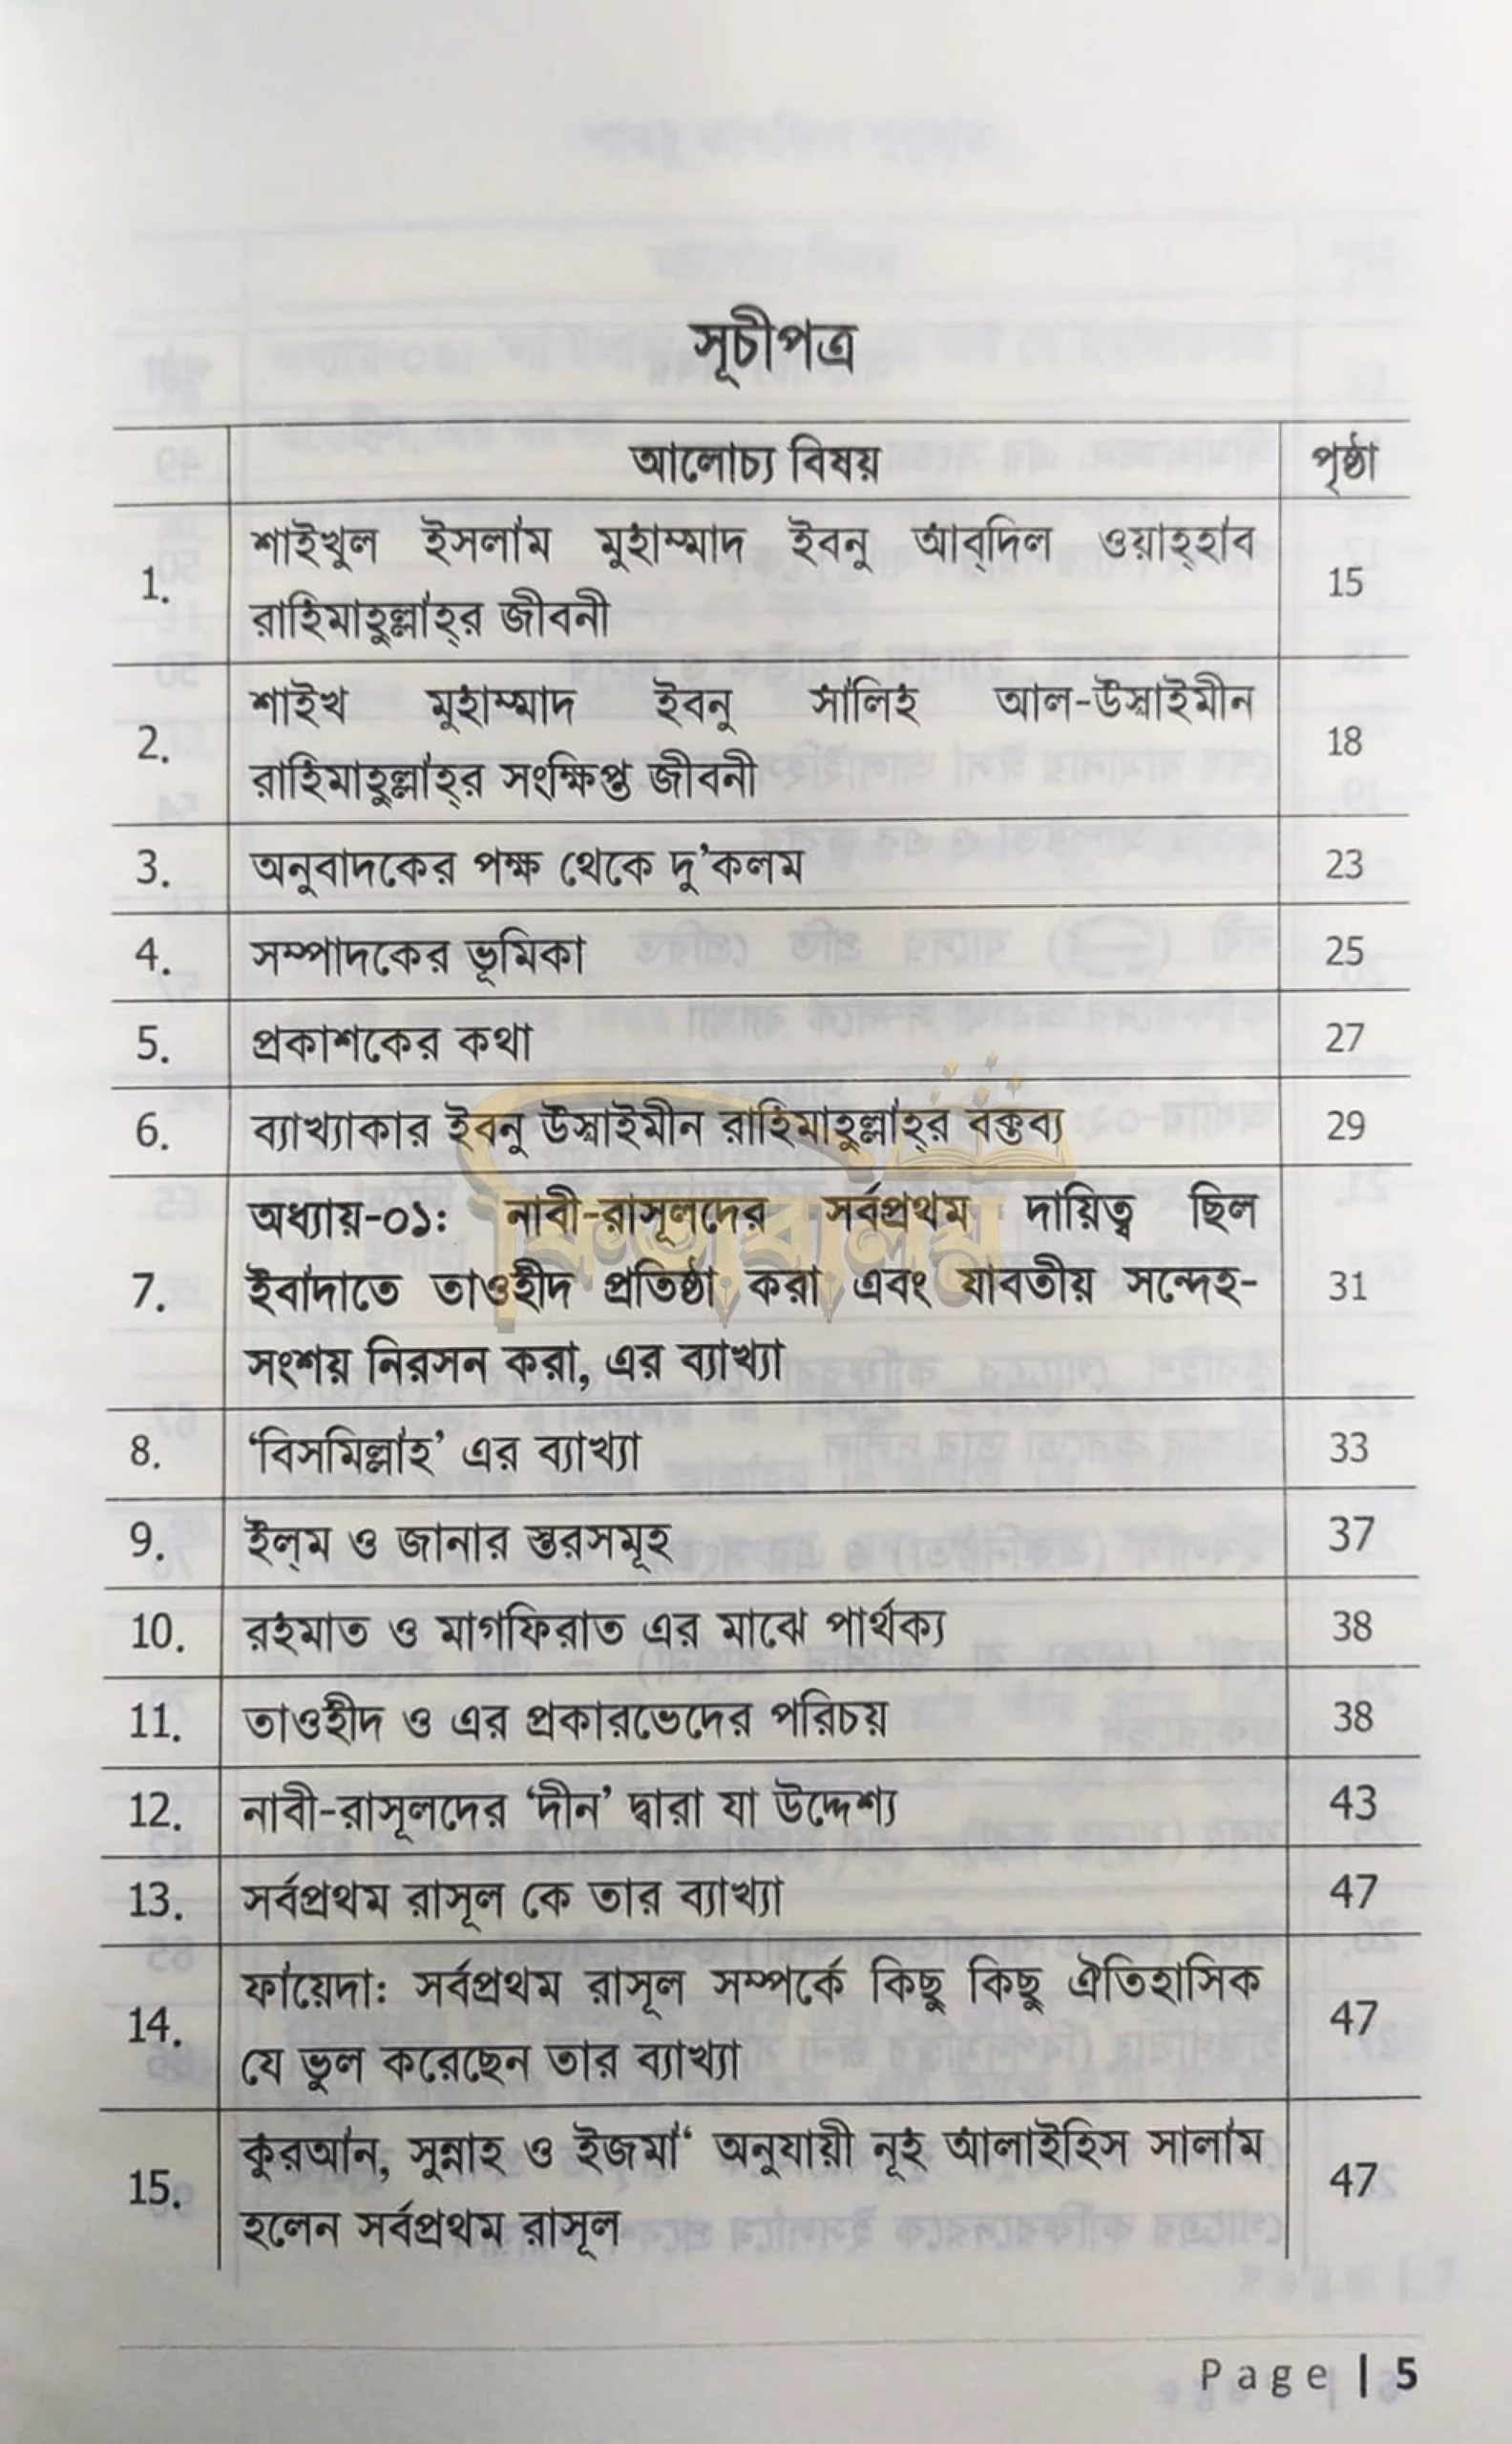 সূচীপত্র
আলোচ্য বিষয় পৃষ্ঠা
1. শাইখুল ইসলাম মুহাম্মাদ ইবনু আব্‌দিল ওয়াহ্‌হাব 15
রাহিমাহুল্লাহ্‌র জীবনী
2. শাইখ মুহাম্মাদ ইবনু সালিহ আল-উস্বাইমীন 18
রাহিমাহুল্লাহ্‌র সংক্ষিপ্ত জীবনী
3. অনুবাদকের পক্ষ থেকে দু’কলম 23
4. সম্পাদকের ভূমিকা 25
5. প্রকাশকের কথা 27
6. ব্যাখ্যাকার ইবনু উস্বাইমীন রাহিমাহুল্লাহ্‌র বক্তব্য 29
অধ্যায়-০১: নাবী-রাসূলদের সর্বপ্রথম দায়িত্ব ছিল
7. ইবাদাতে তাওহীদ প্রতিষ্ঠা করা এবং যাবতীয় সন্দেহ- 31
সংশয় নিরসন করা, এর ব্যাখ্যা
8. ‘বিসমিল্লাহ’ এর ব্যাখ্যা 33
9. ইল্‌ম ও জানার স্তরসমূহ 37
10. রহমাত ও মাগফিরাত এর মাঝে পার্থক্য 38
11. তাওহীদ ও এর প্রকারভেদের পরিচয় 38
12. নাবী-রাসূলদের ‘দীন’ দ্বারা যা উদ্দেশ্য 43
13. সর্বপ্রথম রাসূল কে তার ব্যাখ্যা 47
14. ফায়েদা: সর্বপ্রথম রাসূল সম্পর্কে কিছু কিছু ঐতিহাসিক 47
যে ভুল করেছেন তার ব্যাখ্যা
15. কুরআন, সুন্নাহ ও ইজমা‘ অনুযায়ী নূহ আলাইহিস সালাম 47
হলেন সর্বপ্রথম রাসূল
কিতাবালয়
Page | 5